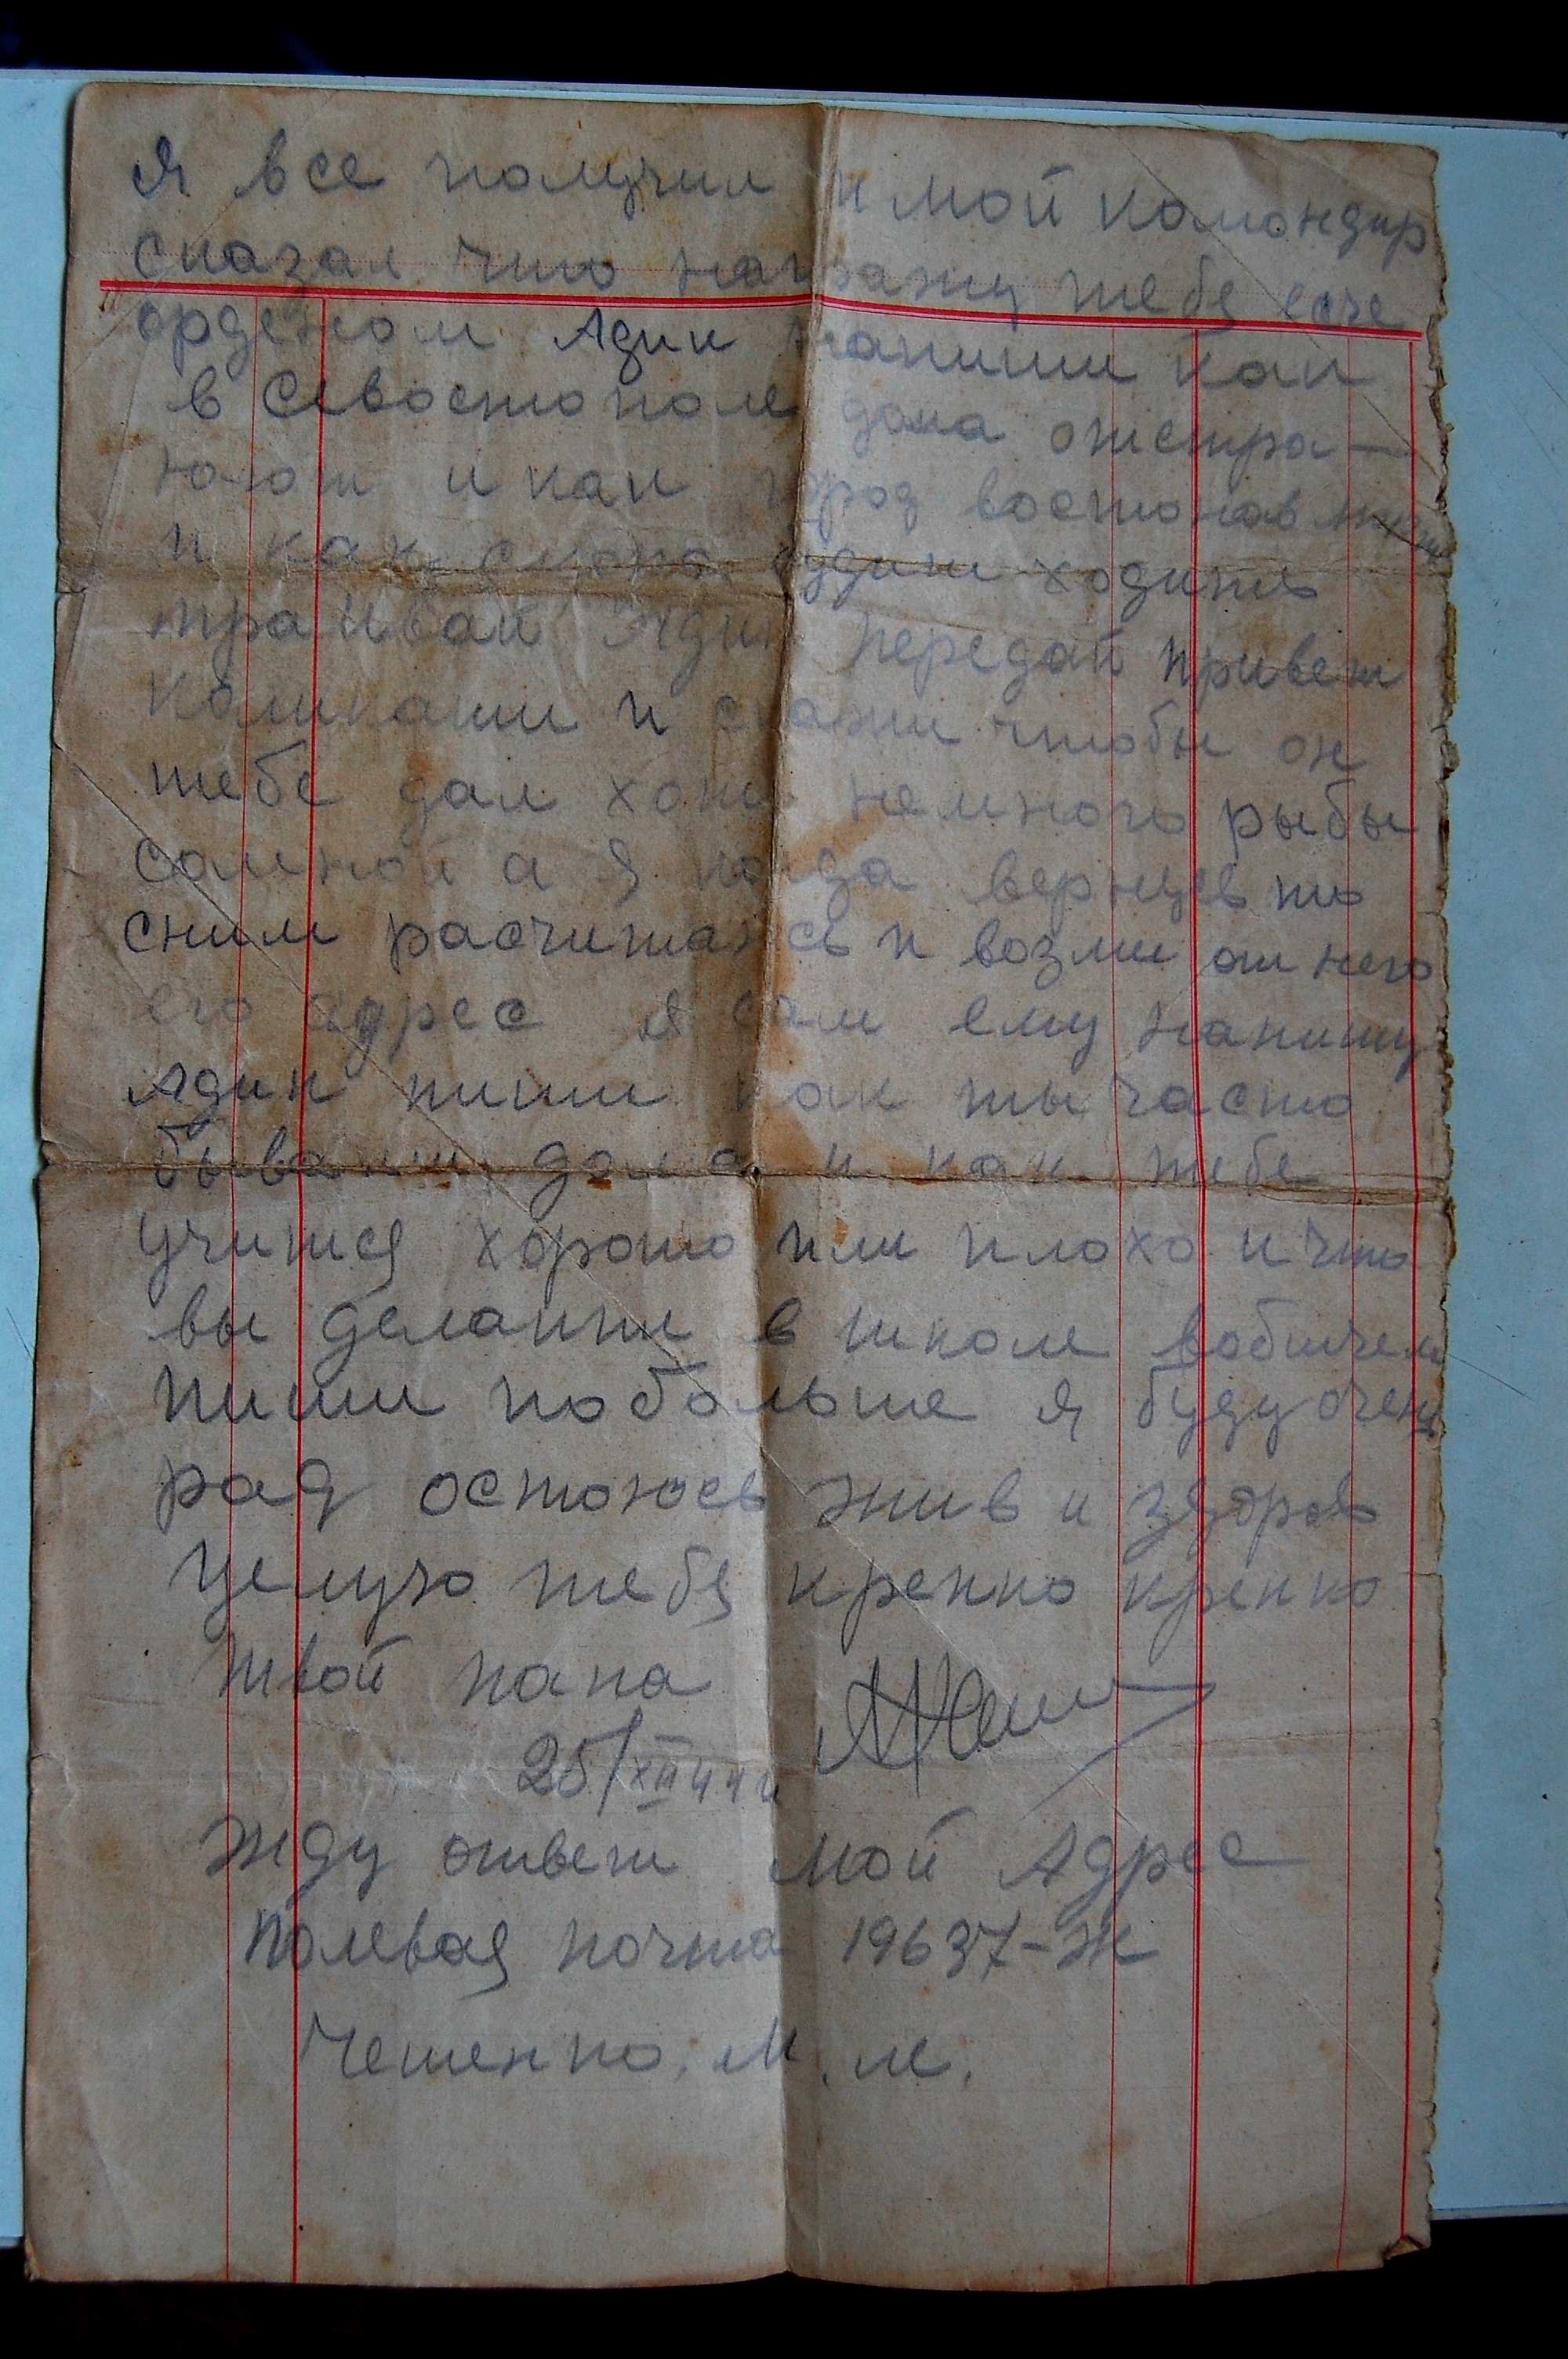 Я все получил и мой командир
сказал что награжу тебя есче
орденом Адик напиши как
в Севостополе дома отстра-
юют и как город востонав
и как скоро будит ходить
трамвай Адик передай привет
и скажи чтобы он
тебе дал хоть немного рыбы
самной а я когда вернусь то
сним расчитаюсь и возми от него
его адрес я сам ему напишу
Адик пиши как ты часто
бываиш дома и как тебе
учитися хорошо или плохо и что
вы делаити в школе вобщчем
пиши побольше я буду очень
рад остаюсь жив и здоров
Целую тебя крепко крепко
твой папа
25/XII 44 г
Жду ответ мой Адрес
Полевая почта 19637-Ж
Чешенко. М. М.